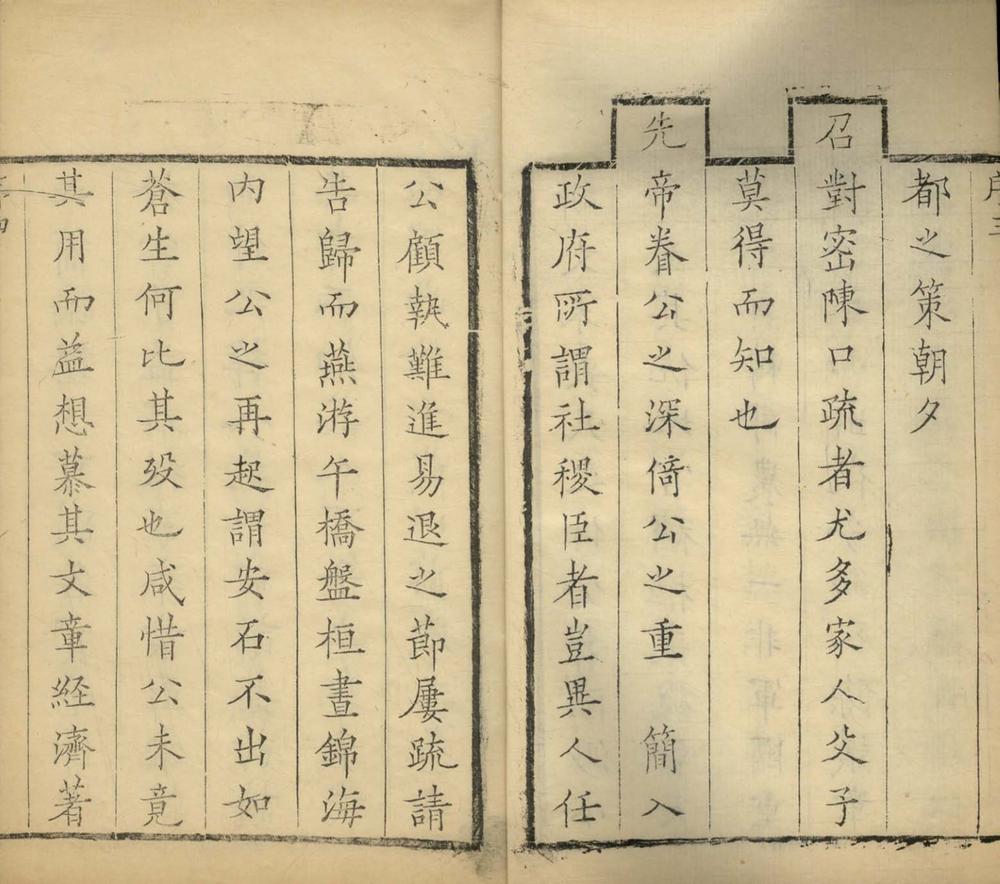 序三
都之策朝夕
召對密陳口疏者尤多家人父子
莫得而知也
先帝眷公之深倚公之重　簡入
政府所謂社稷臣者豈異人任
公顧執難進易退之節屢疏請
告歸而燕游午橋盤桓晝錦海
内望公之再起謂安石不出如
蒼生何比其歿也咸惜公未竟
其用而益想慕其文章經濟著